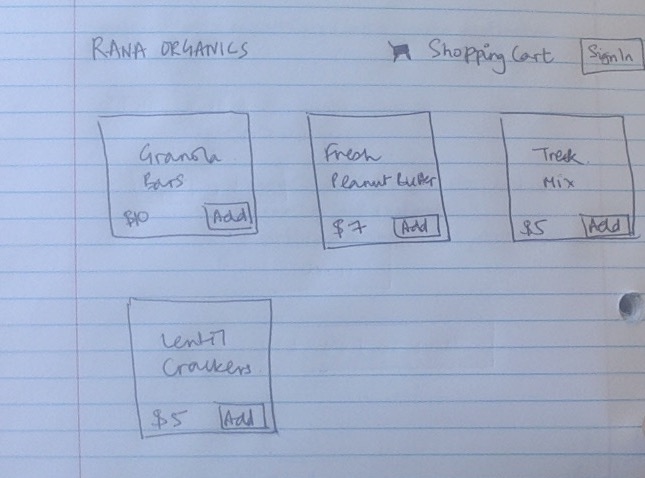 RANA ORGANICS
Shopping Cart
Sign In
Granola
Bars
$10
Add
Fresh
Peanut Butter
$7
Add
Trek
Mix
$5
Add
Lentil
Crackers
$5
Add